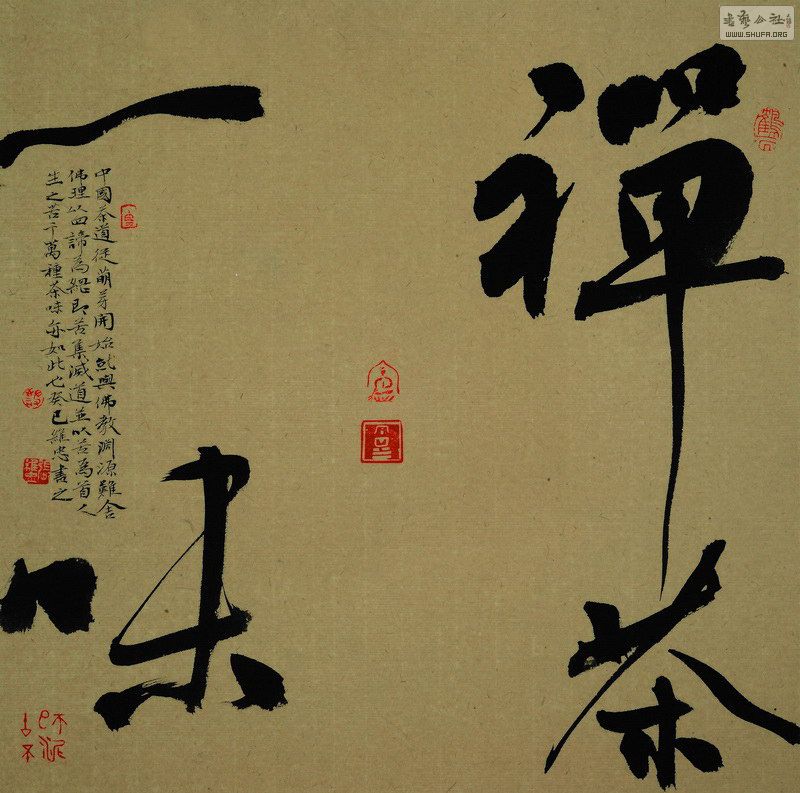 書藝公社
WWW.SHUFA.ORG
禪茶
一味
中國茶道從萌芽開始就與佛教淵源難舍
佛理以四諦為總即苦集滅道並以苦為首人
生之苦千萬種茶味亦如此也癸巳維忠書之